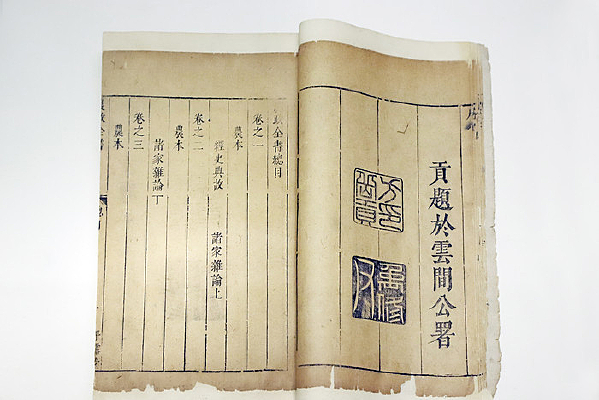 貢題於雲間公署
方岳貢印
政全書總目
卷之一
農本
經史典故 諸家雜論上
卷之二
農本
諸家雜論下
卷之三
農本